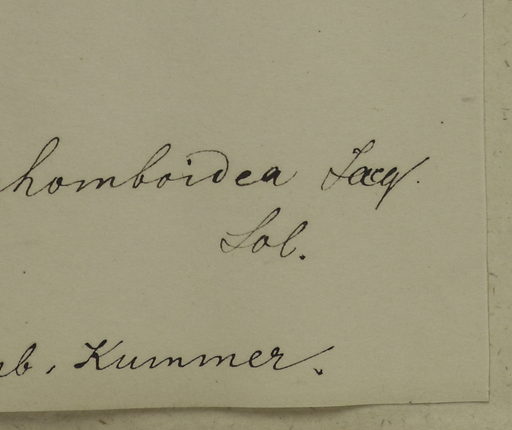 homboidea Jacq.
Sol.
rb. Kummer.